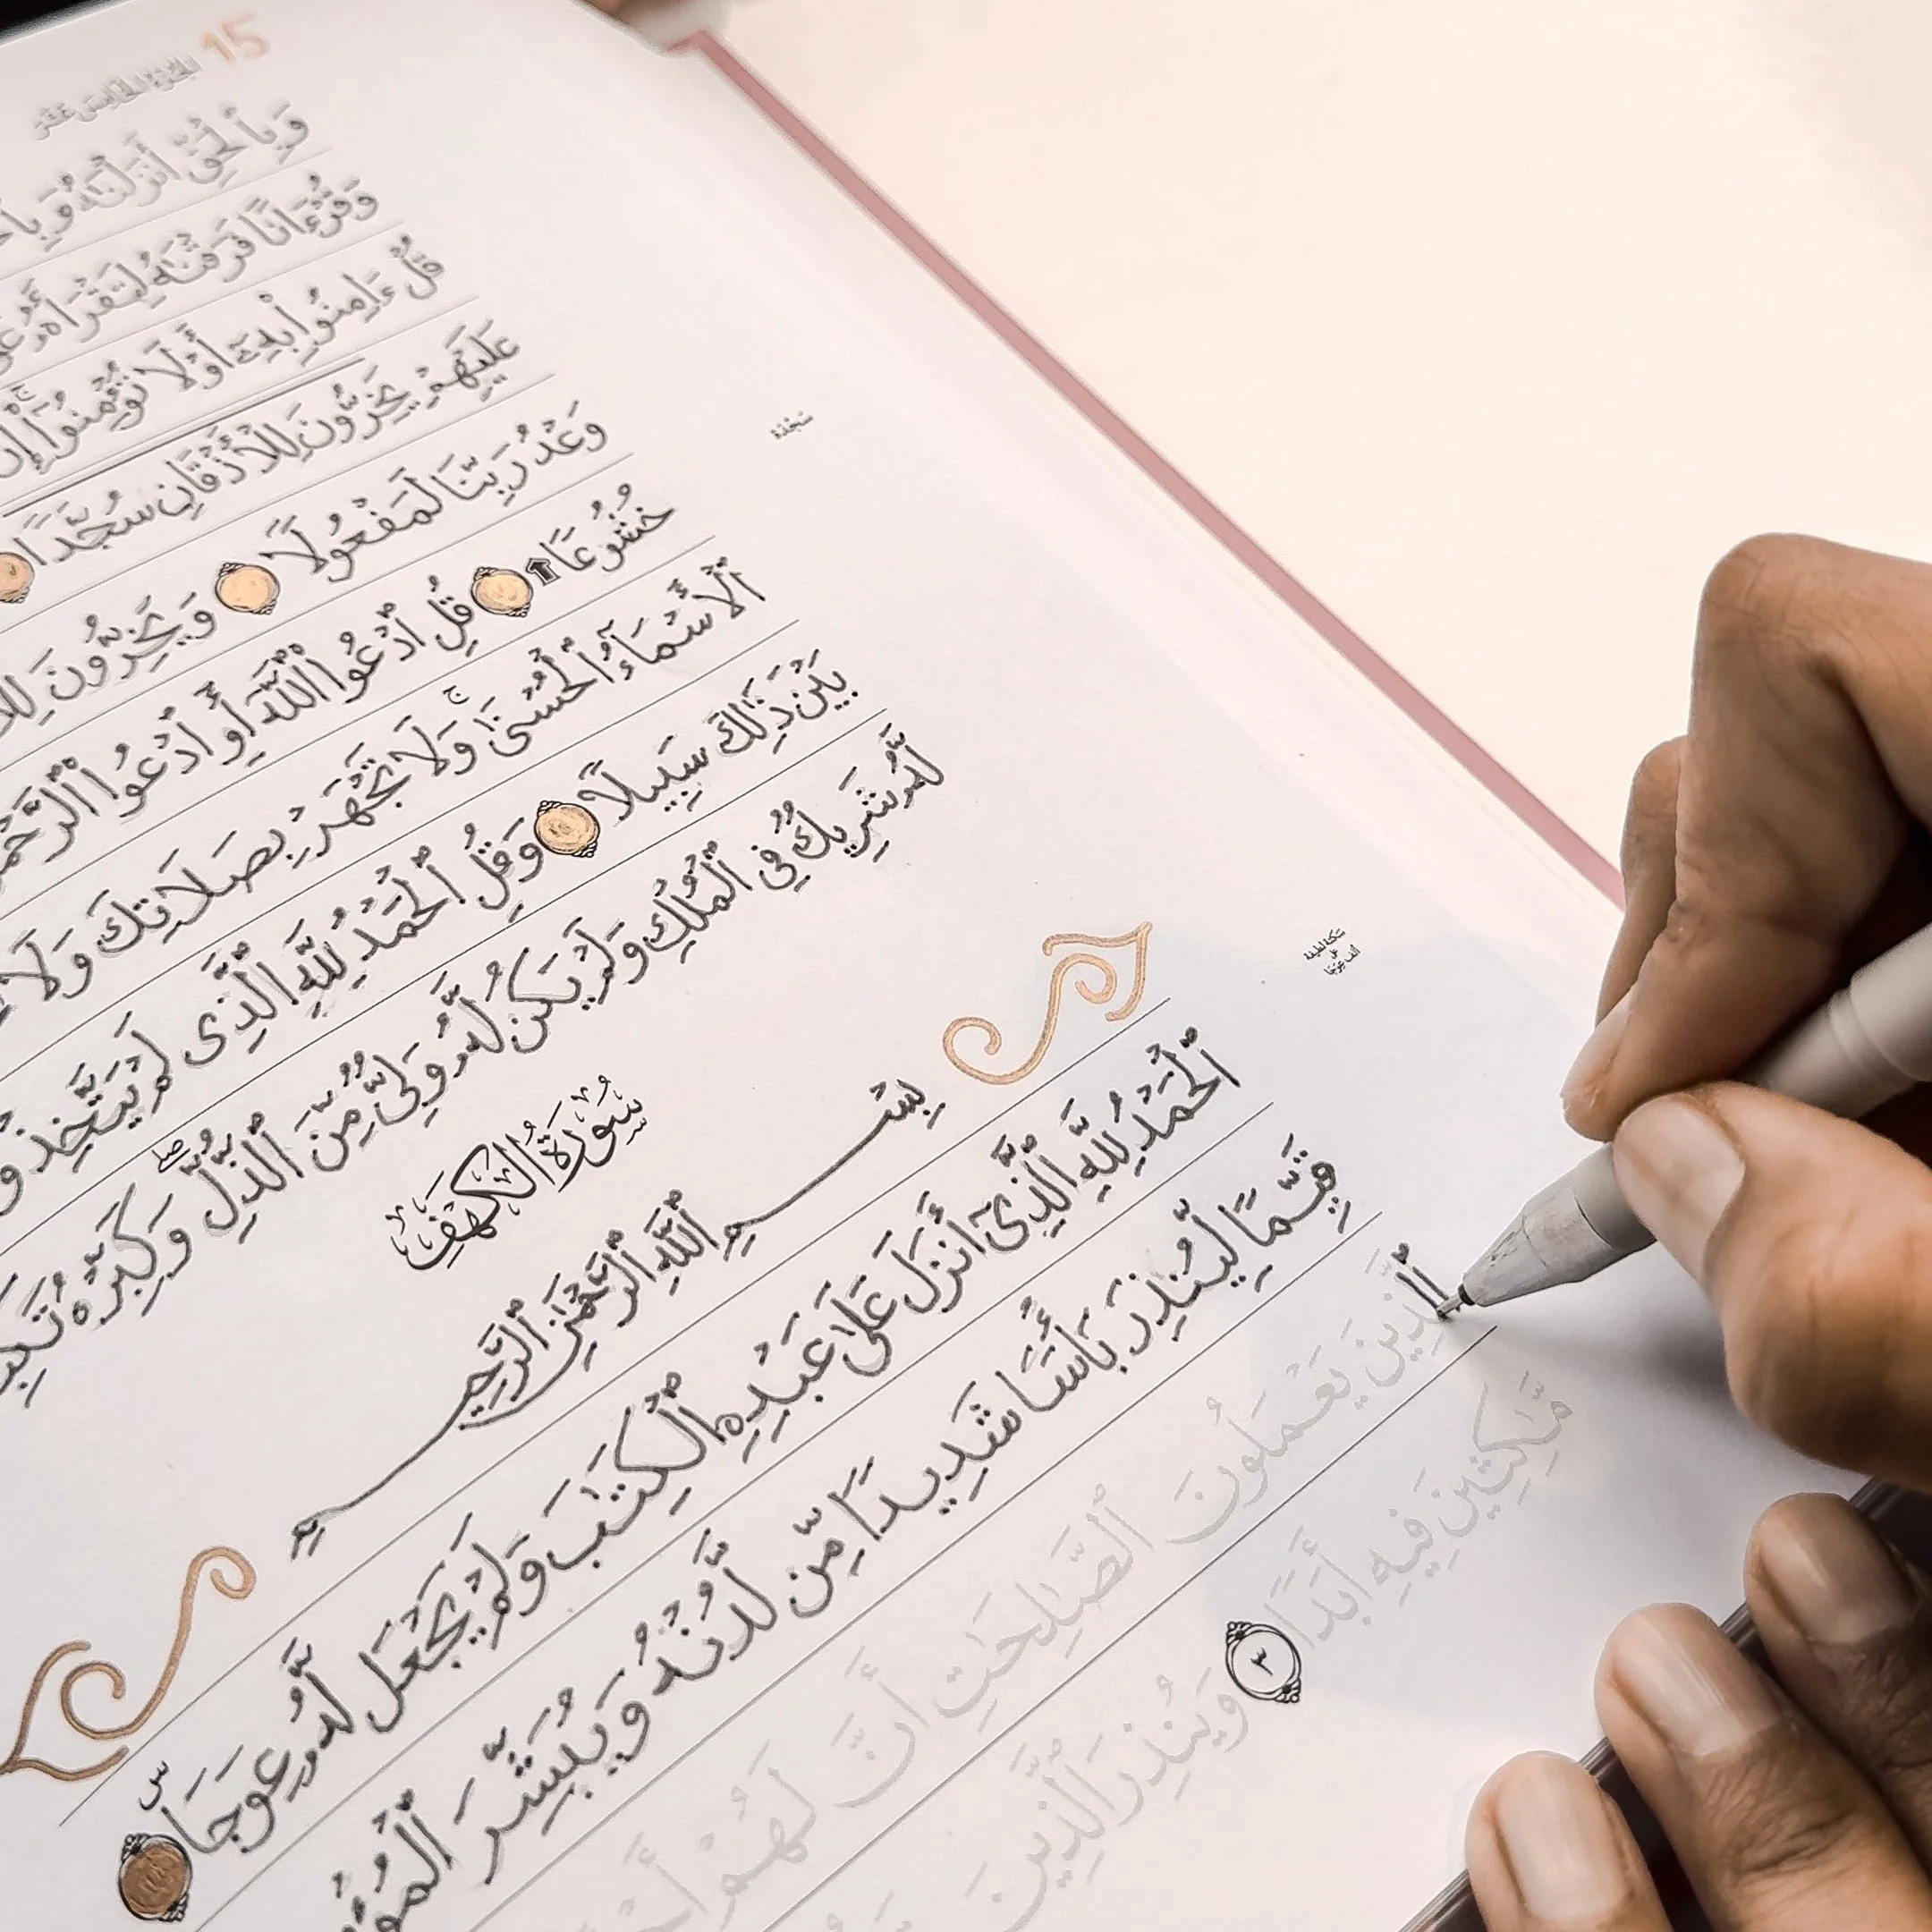 15
الجزء الخامس عشر
وَبِٱلْحَقِّ أَنزَلْنَٰهُ وَبِٱلْحَ
وَقُرْءَانًا فَرَقْنَٰهُ لِتَقْرَأَهُۥ عَ
قُلْ ءَامِنُوا۟ بِهِۦٓ أَوْ لَا تُؤْمِنُوٓا۟ ۚ إِنَّ
عَلَيْهِمْ يَخِرُّونَ لِلْأَذْقَانِ سُجَّدًا
سَجْدَة
وَعْدُ رَبِّنَا لَمَفْعُولًا وَيَخِرُّونَ لِلْأَ
خُشُوعًا قُلِ ٱدْعُوا۟ ٱللَّهَ أَوِ ٱدْعُوا۟ ٱلرَّحْمَ
ٱلْأَسْمَآءُ ٱلْحُسْنَىٰ ۚ وَلَا تَجْهَرْ بِصَلَاتِكَ وَلَا
بَيْنَ ذَٰلِكَ سَبِيلًا وَقُلِ ٱلْحَمْدُ لِلَّهِ ٱلَّذِى لَمْ يَتَّخِذْ وَ
لَّهُۥ شَرِيكٌ فِى ٱلْمُلْكِ وَلَمْ يَكُن لَّهُۥ وَلِىٌّ مِّنَ ٱلذُّلِّ ۖ وَكَبِّرْهُ تَكْبِ
سُورَةُ الكَهْفِ
بِسْمِ ٱللَّهِ ٱلرَّحْمَٰنِ ٱلرَّحِيمِ
سكتة لطيفة
على
ألف عوجا
ٱلْحَمْدُ لِلَّهِ ٱلَّذِىٓ أَنزَلَ عَلَىٰ عَبْدِهِ ٱلْكِتَٰبَ وَلَمْ يَجْعَل لَّهُۥ عِوَجَا ۜ
قَيِّمًا لِّيُنذِرَ بَأْسًا شَدِيدًا مِّن لَّدُنْهُ وَيُبَشِّرَ ٱلْمُؤْ
ٱلَّذِينَ يَعْمَلُونَ ٱلصَّٰلِحَٰتِ أَنَّ لَهُمْ أَجْ
مَّٰكِثِينَ فِيهِ أَبَدًا ٣ وَيُنذِرَ ٱلَّذِينَ